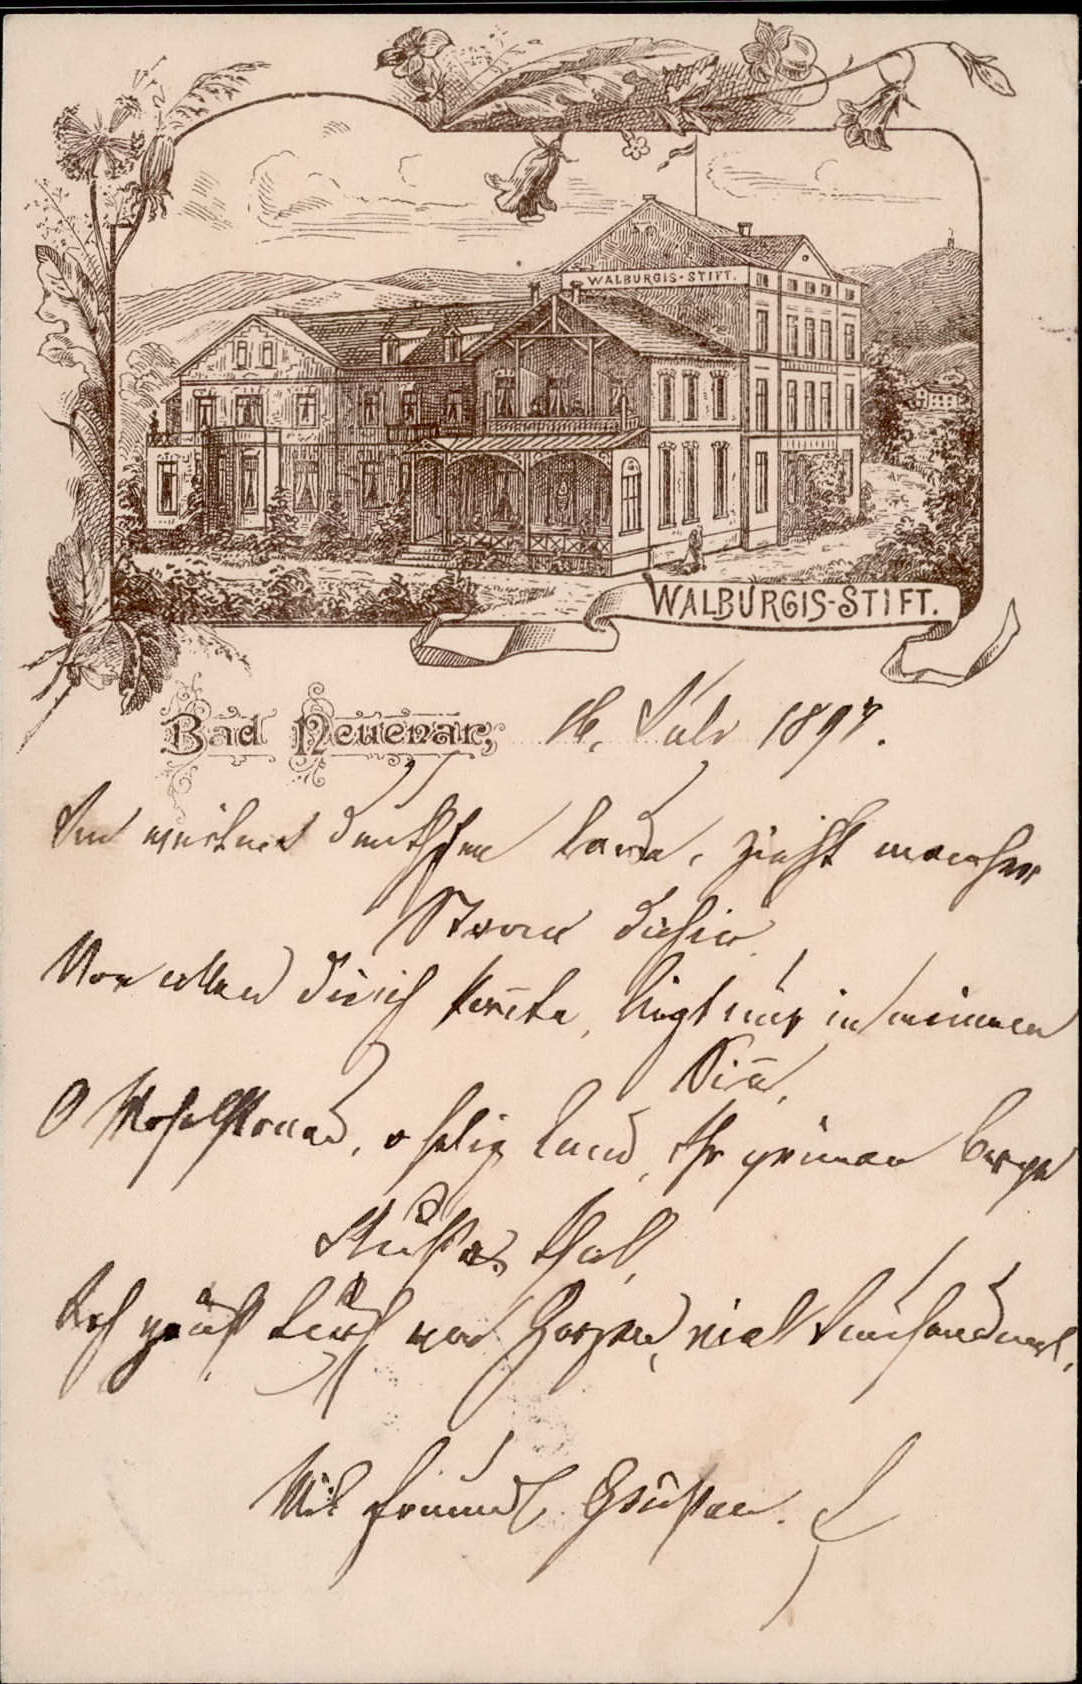 WALBURGIS-STIFT.
WALBURGIS-STIFT.
Bad Neuenar, 16. Juli 1897.
Im weiten deutschen Lande, zieht mancher
Strom dahin
Von allen die ich kannte, liegt mir in meinem
Sin̄,
O Moselstrand, o selig Land, Ihr grünen Berge
Fluß u. Thal,
Ich grüß Euch von Herzen, viel tausendmal,
Mit freundl. Grüßen.